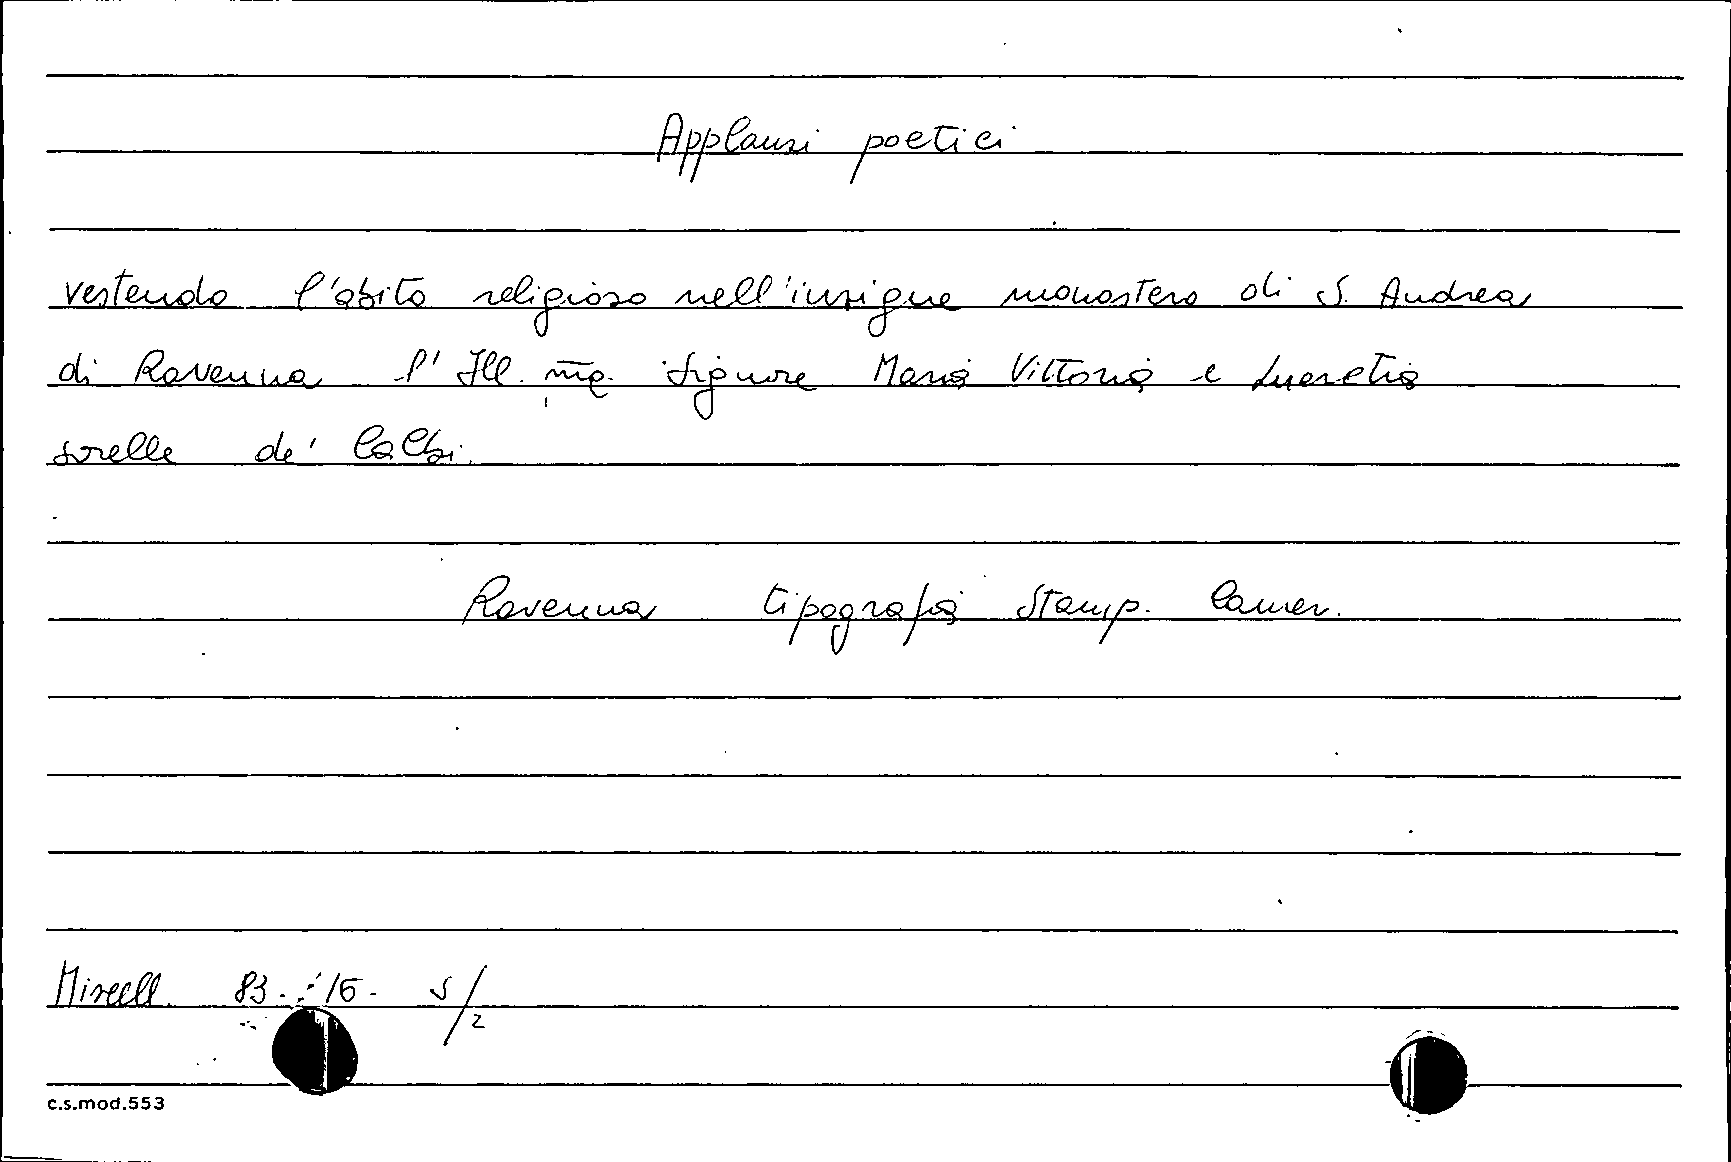 Applausi poetici
vestendo l'abito religioso nell'insigne monastero di S. Andrea
di Ravenna l'Ill.me signore Maria Vittoria e Lucretia
sorelle de' Calbi.
Ravenna tipografia Stamp. Camer.
Miscell. 83. 16. S/2
c.s.mod.553